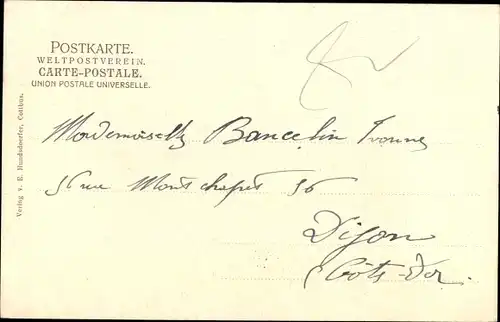 POSTKARTE.
WELTPOSTVEREIN.
CARTE-POSTALE.
UNION POSTALE UNIVERSELLE.
Verlag v. E. Hundsdoerfer, Cottbus.
Mademoiselle Bancelin Ivonne
56 rue Montchapet 56
Dijon
Côte-d'Or.